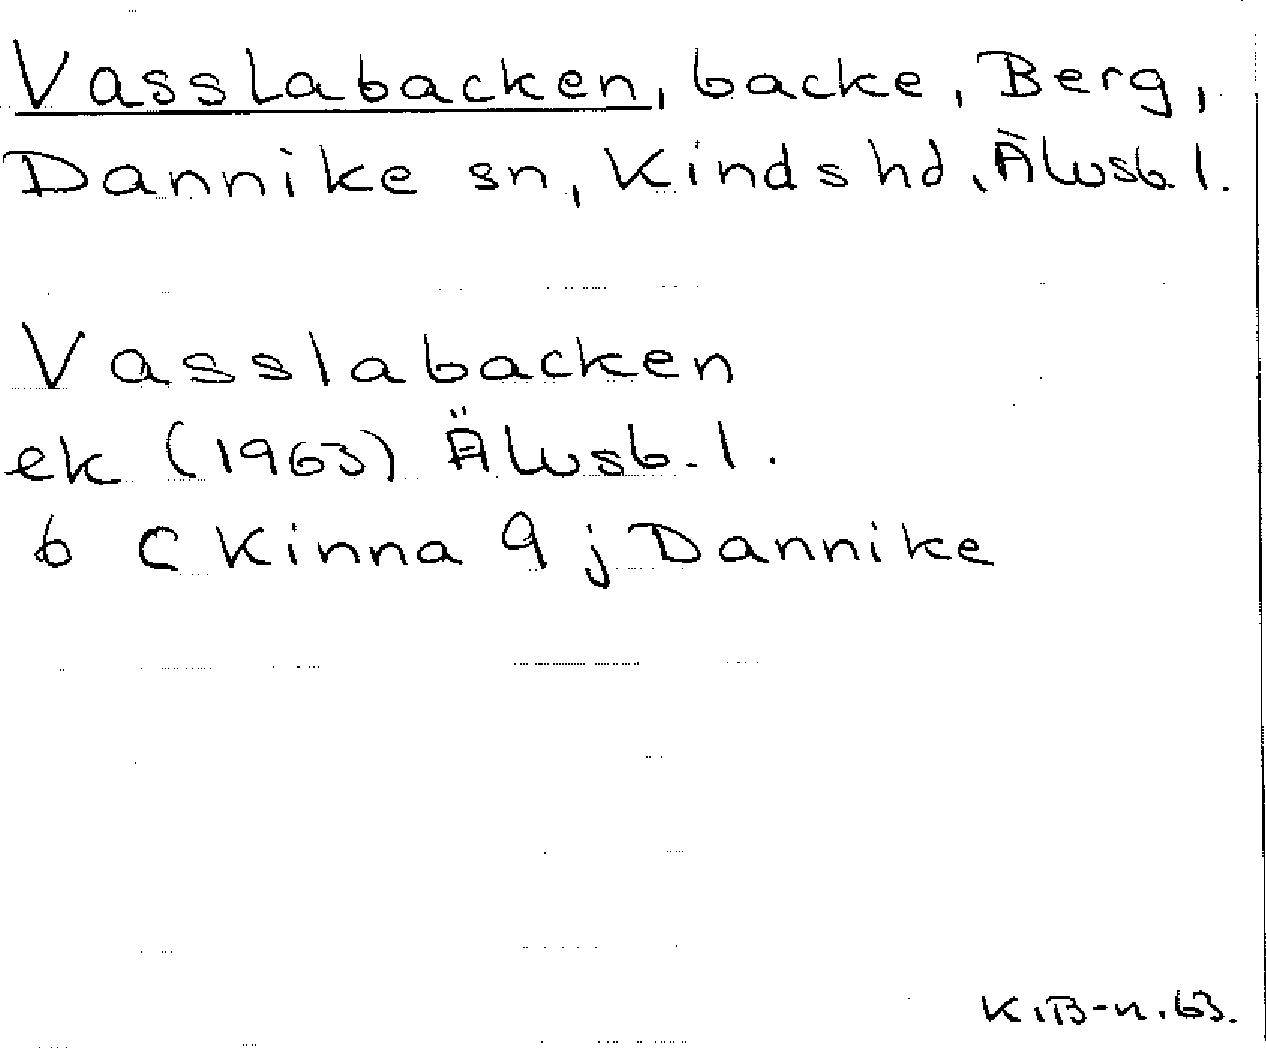 Vasslabacken, backe, Berg,
Dannike sn, Kinds hd, Älvsb. l.
Vasslabacken
ek (1963) Älvsb. l.
6 C Kinna 9 j Dannike
K.B-n. 63.